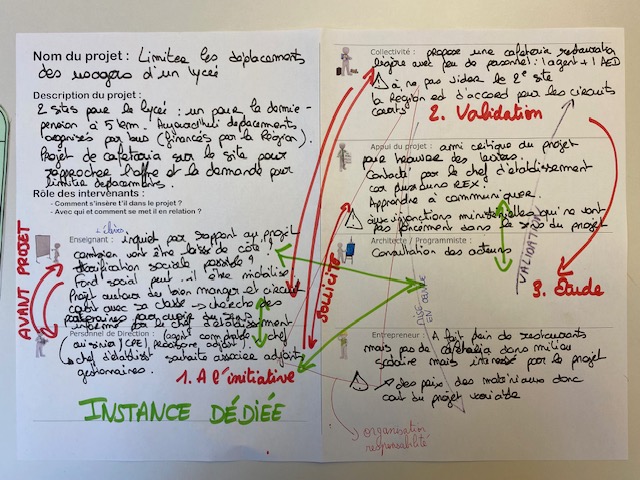 Nom du projet : Limiter les déplacements
des usagers d'un lycée
Description du projet :
2 sites pour le lycée : un pour la demie-
pension à 5 km. Aujourd'hui déplacements
organisés par bus (financés par la Région).
Projet de cafétéria sur le site pour
rapprocher l'offre et la demande pour
limiter déplacements.
Rôle des intervenants :
- Comment s'insère t'il dans le projet ?
- Avec qui et comment se met il en relation ?
Enseignant : inquiet par rapport au projet
vont être laissé de côté ?
sociale possible ?
Fond social peut-il être mobilisé
Projet autour du bien manger et circuit
court avec sa classe → cherche des
partenaires pour
informé par le chef d'établissement
Personnel de Direction : (agent comptable, chef
cuisinier, CPE,
↳ chef d'établist souhaite associer adjoints
gestionnaires.
1. A l'initiative
INSTANCE DÉDIÉE
AVANT PROJET
Collectivité : propose une cafétéria restauration
légère avec peu de personnel : 1 agent + 1 AED
à ne pas vider le 2e site
la Région est d'accord pour les circuits
courts
2. Validation
Appui du projet : ami critique du projet
pour trouver des leviers.
Contacté par le chef d'établissement
car plusieurs REX.
Apprendre à communiquer.
aux injonctions ministérielles qui ne vont
pas forcément dans le sens du projet
Architecte / Programmiste :
Consultation des acteurs
SOLLICITE
VALIDATION
MISE EN OEUVRE
3. Étude
Entrepreneur : A fait plein de restaurants
mais pas de cafétéria dans milieu
scolaire mais intéressé par le projet
des prix des matériaux donc
cout du projet variable
organisation
responsabilité